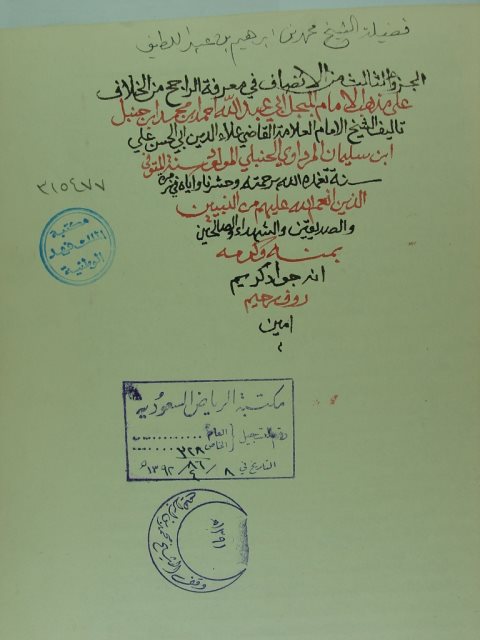 فضيلة الشيخ محمد بن ابرهيم بن عبد اللطيف
الجزء الثالث من الانصاف في معرفة الراجح من الخلاف
على مذهب الامام المبجل ابي عبد الله احمد بن محمد بن حنبل
تاليف الشيخ الامام العلامة القاضي علاء الدين ابي الحسن علي
ابن سليمان المرداوي الحنبلي المولود سنة المتوفى
سنة تغمده الله برحمته وحشرنا واياه في زمرة
الذين انعم الله عليهم من النبيين
والصديقين والشهداء والصالحين
بمنه وكرمه
انه جواد كريم
روف رحيم
امين
٣١٥٤٧٧
مكتبة
الملك فهد
الوطنية
مكتبة الرياض السعودية
رقم التسجيل
العام
الخاص ٣٢٨
التاريخ في ٨ / ٨٦
١٣٩٢هـ
١٣٩١هـ
وقف الشيخ محمد بن